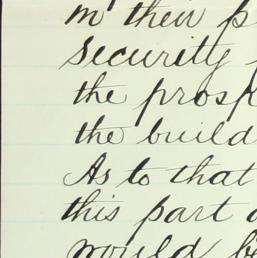 in their p
security
the prosp
the build
As to that
this part
would be